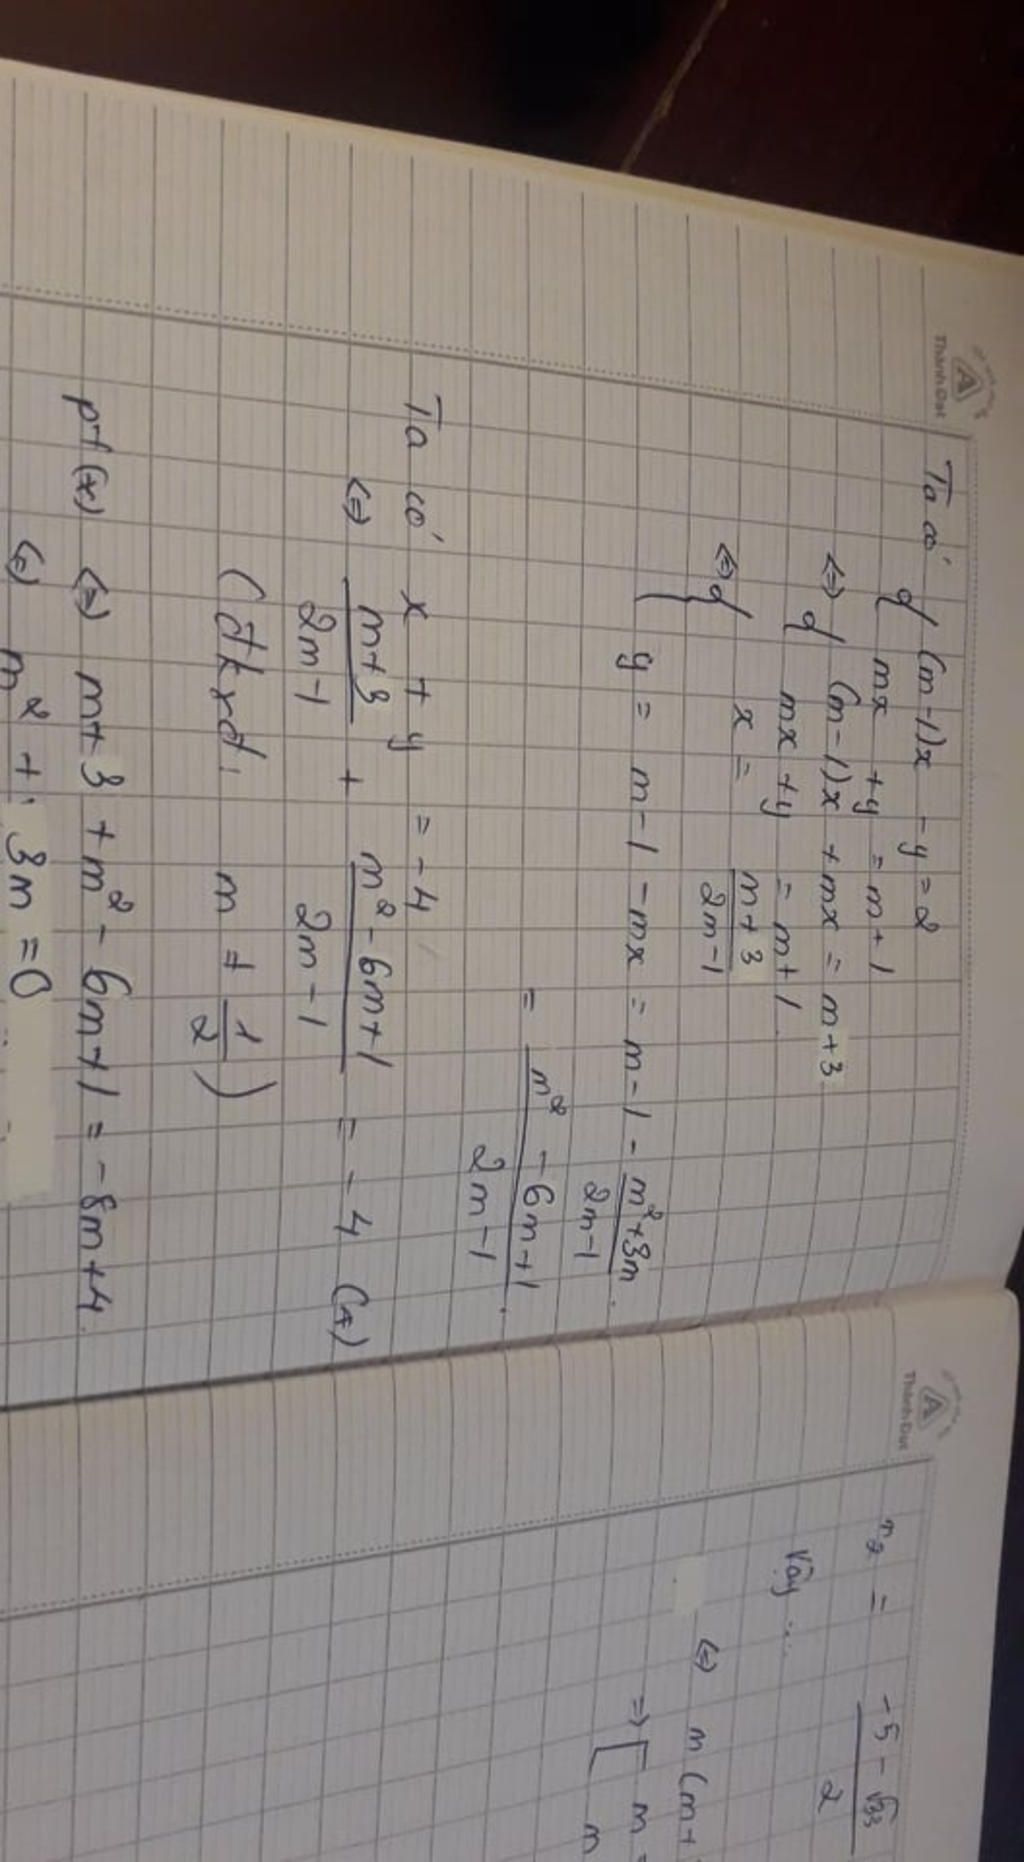 Thành Đạt
Ta có { (m-1)x - y = 2
mx + y = m+1
<=> { (m-1)x + mx = m+3
mx + y = m+1.
<=> { x = \frac{m+3}{2m-1}
y = m-1-mx = m-1-\frac{m²+3m}{2m-1}.
= \frac{m²-6m+1}{2m-1}.
Ta có x + y = -4
<=> \frac{m+3}{2m-1} + \frac{m²-6m+1}{2m-1} = -4 (*)
(đkxđ: m ≠ \frac{1}{2})
pt (*) <=> m+3+m²-6m+1 = -8m+4.
<=> m²+3m=0
Thành Đạt
= \frac{-5-√33}{2}
Vậy ....
<=> m (m+
=> [ m =
m